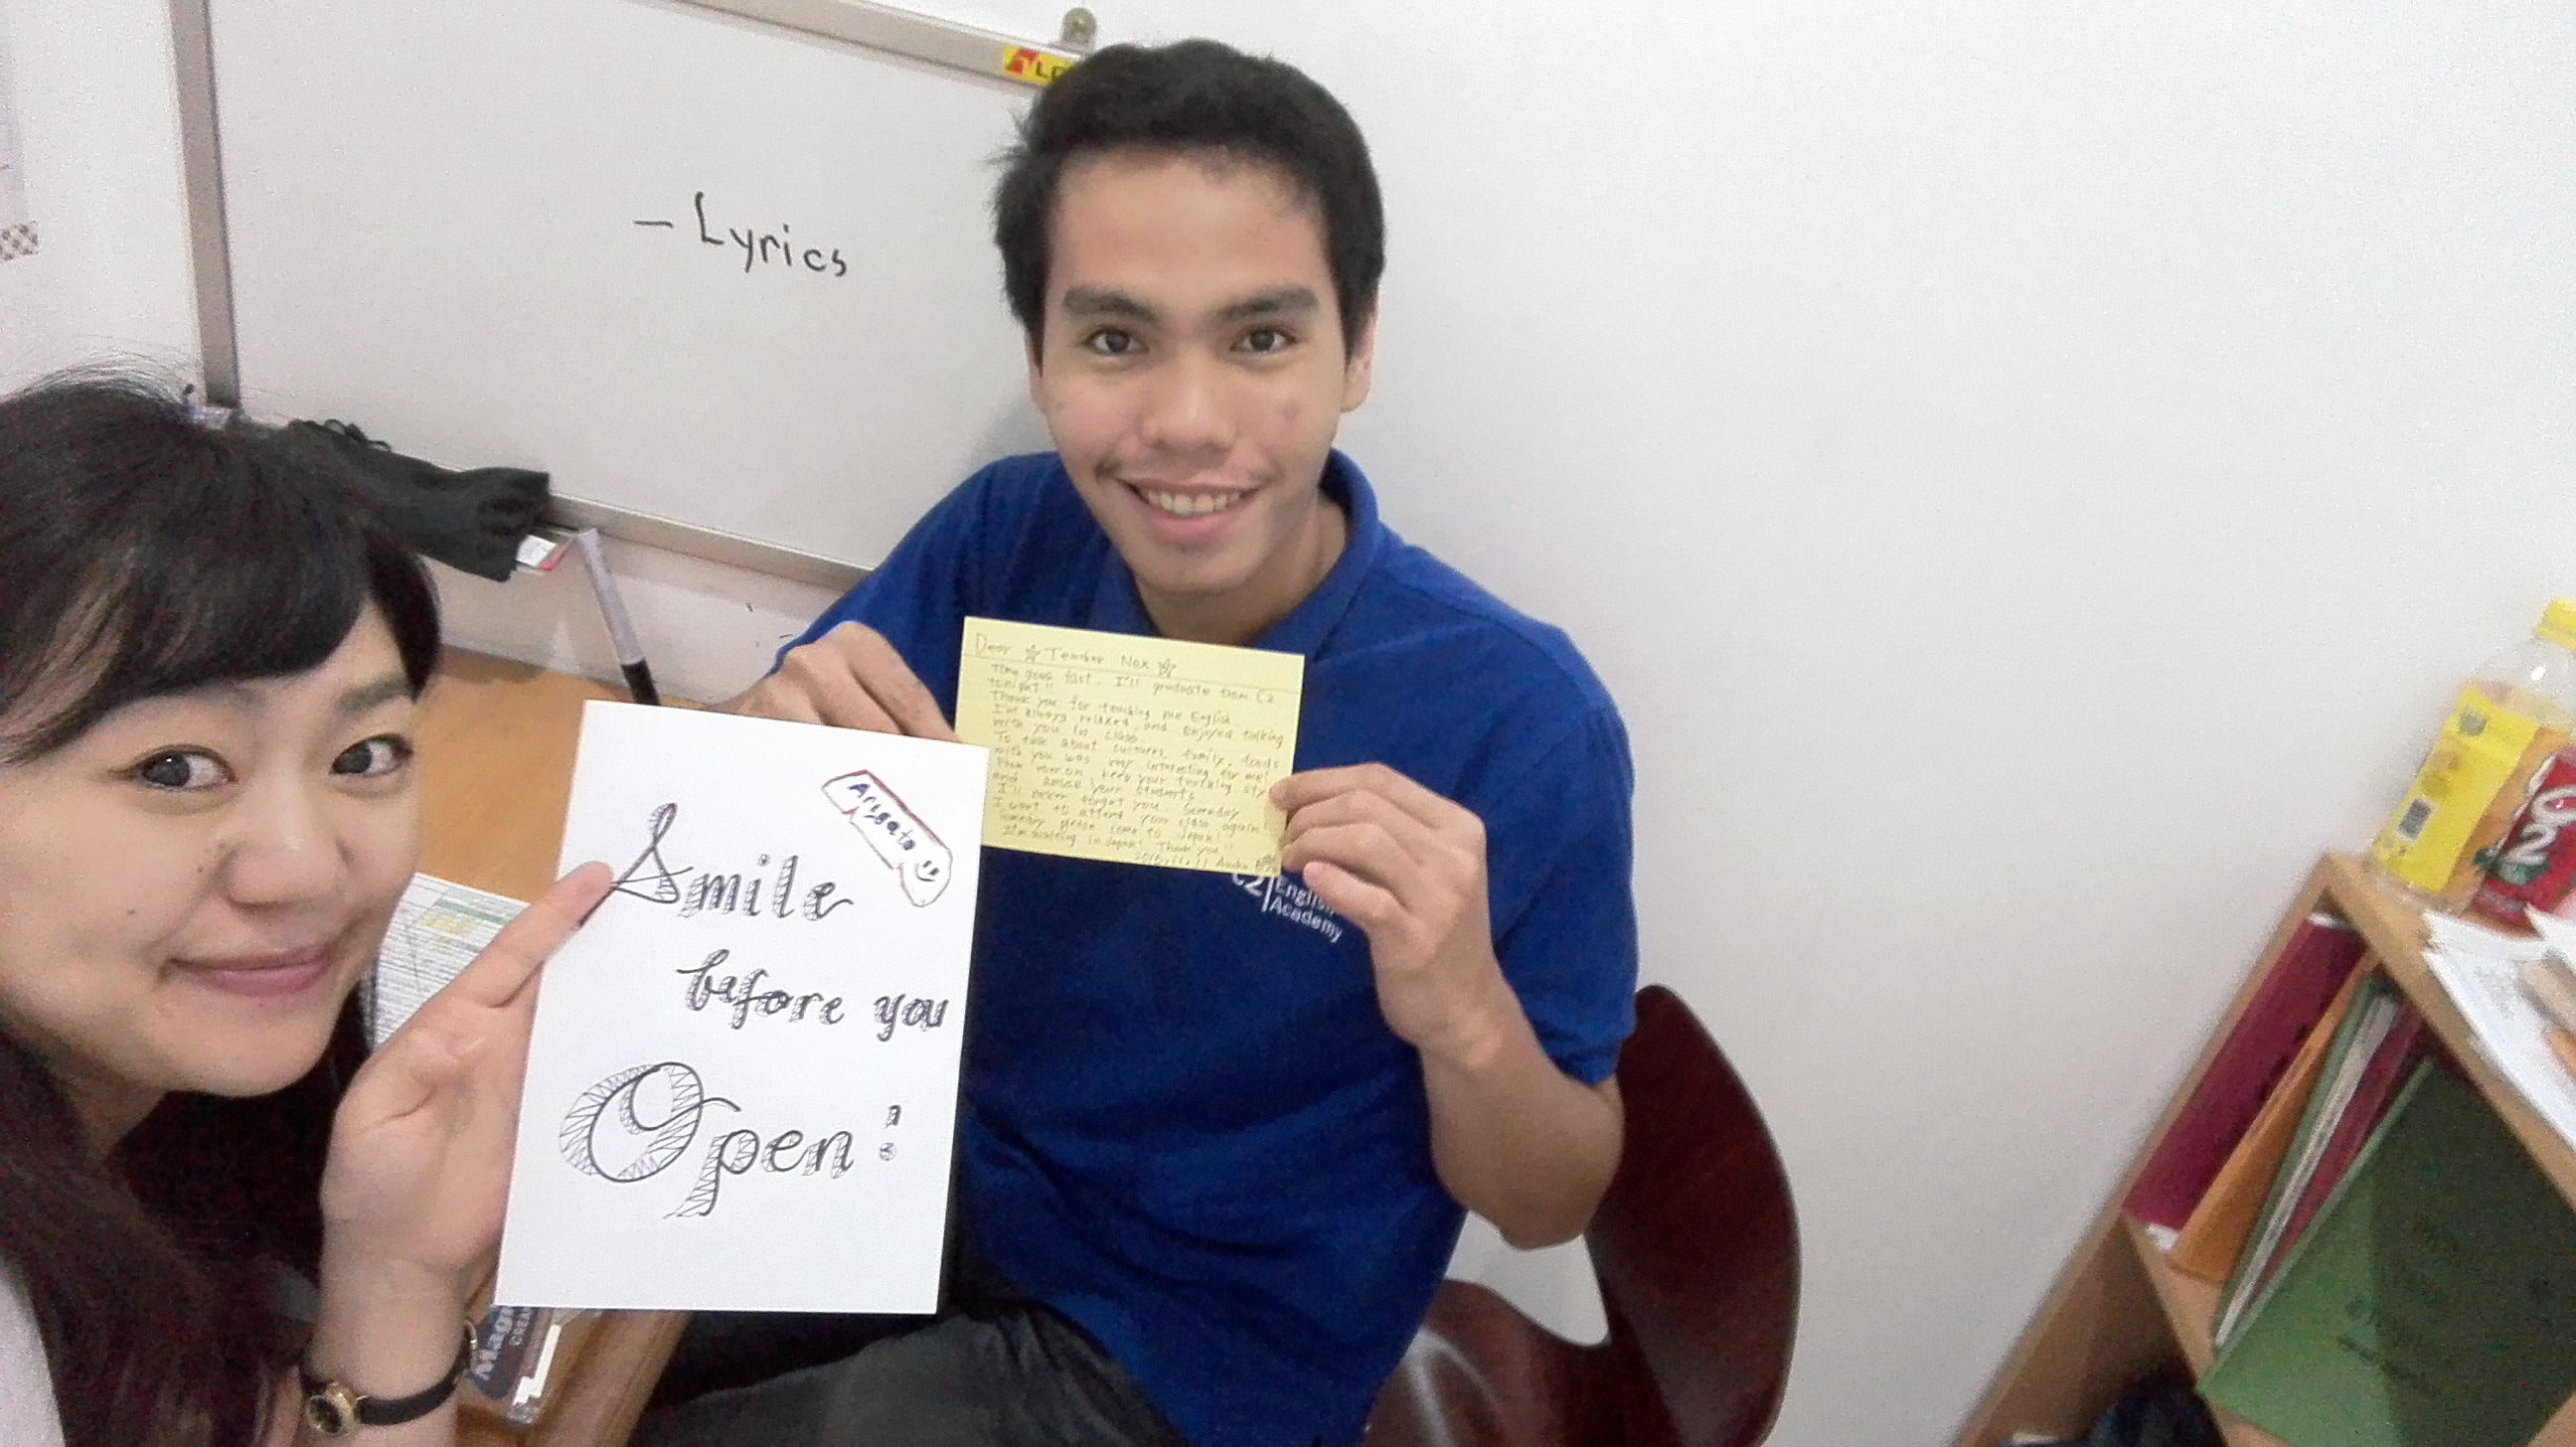 - Lyrics
Dear ☆ Teacher Nex ☆
Time goes fast. I'll graduate from C2
tonight!!
Thank you for teaching me English
I'm always relaxed and enjoyed talking
with you in class.
To talk about cultures, family, foods
with you was very interesting for me!
From now on keep your teaching sty
and amuse your students
I'll never forget you. Someday
I want to attend your class again!
Someday please come to Japan!
I'm waiting in Japan! Thank you!!
Arigato
Smile
before you
Open:
C2 English
Academy
C2
Mag
CREA